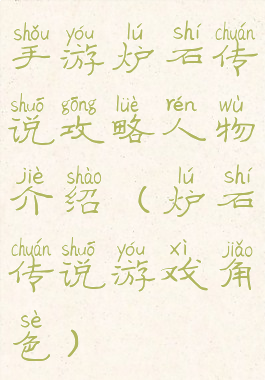 shǒu yóu lú shí chuán
手游炉石传
shuō gōng lüè rén wù
说攻略人物
jiè shào lú shí
介绍(炉石
chuán shuō yóu xì jiǎo
传说游戏角
sè
色)